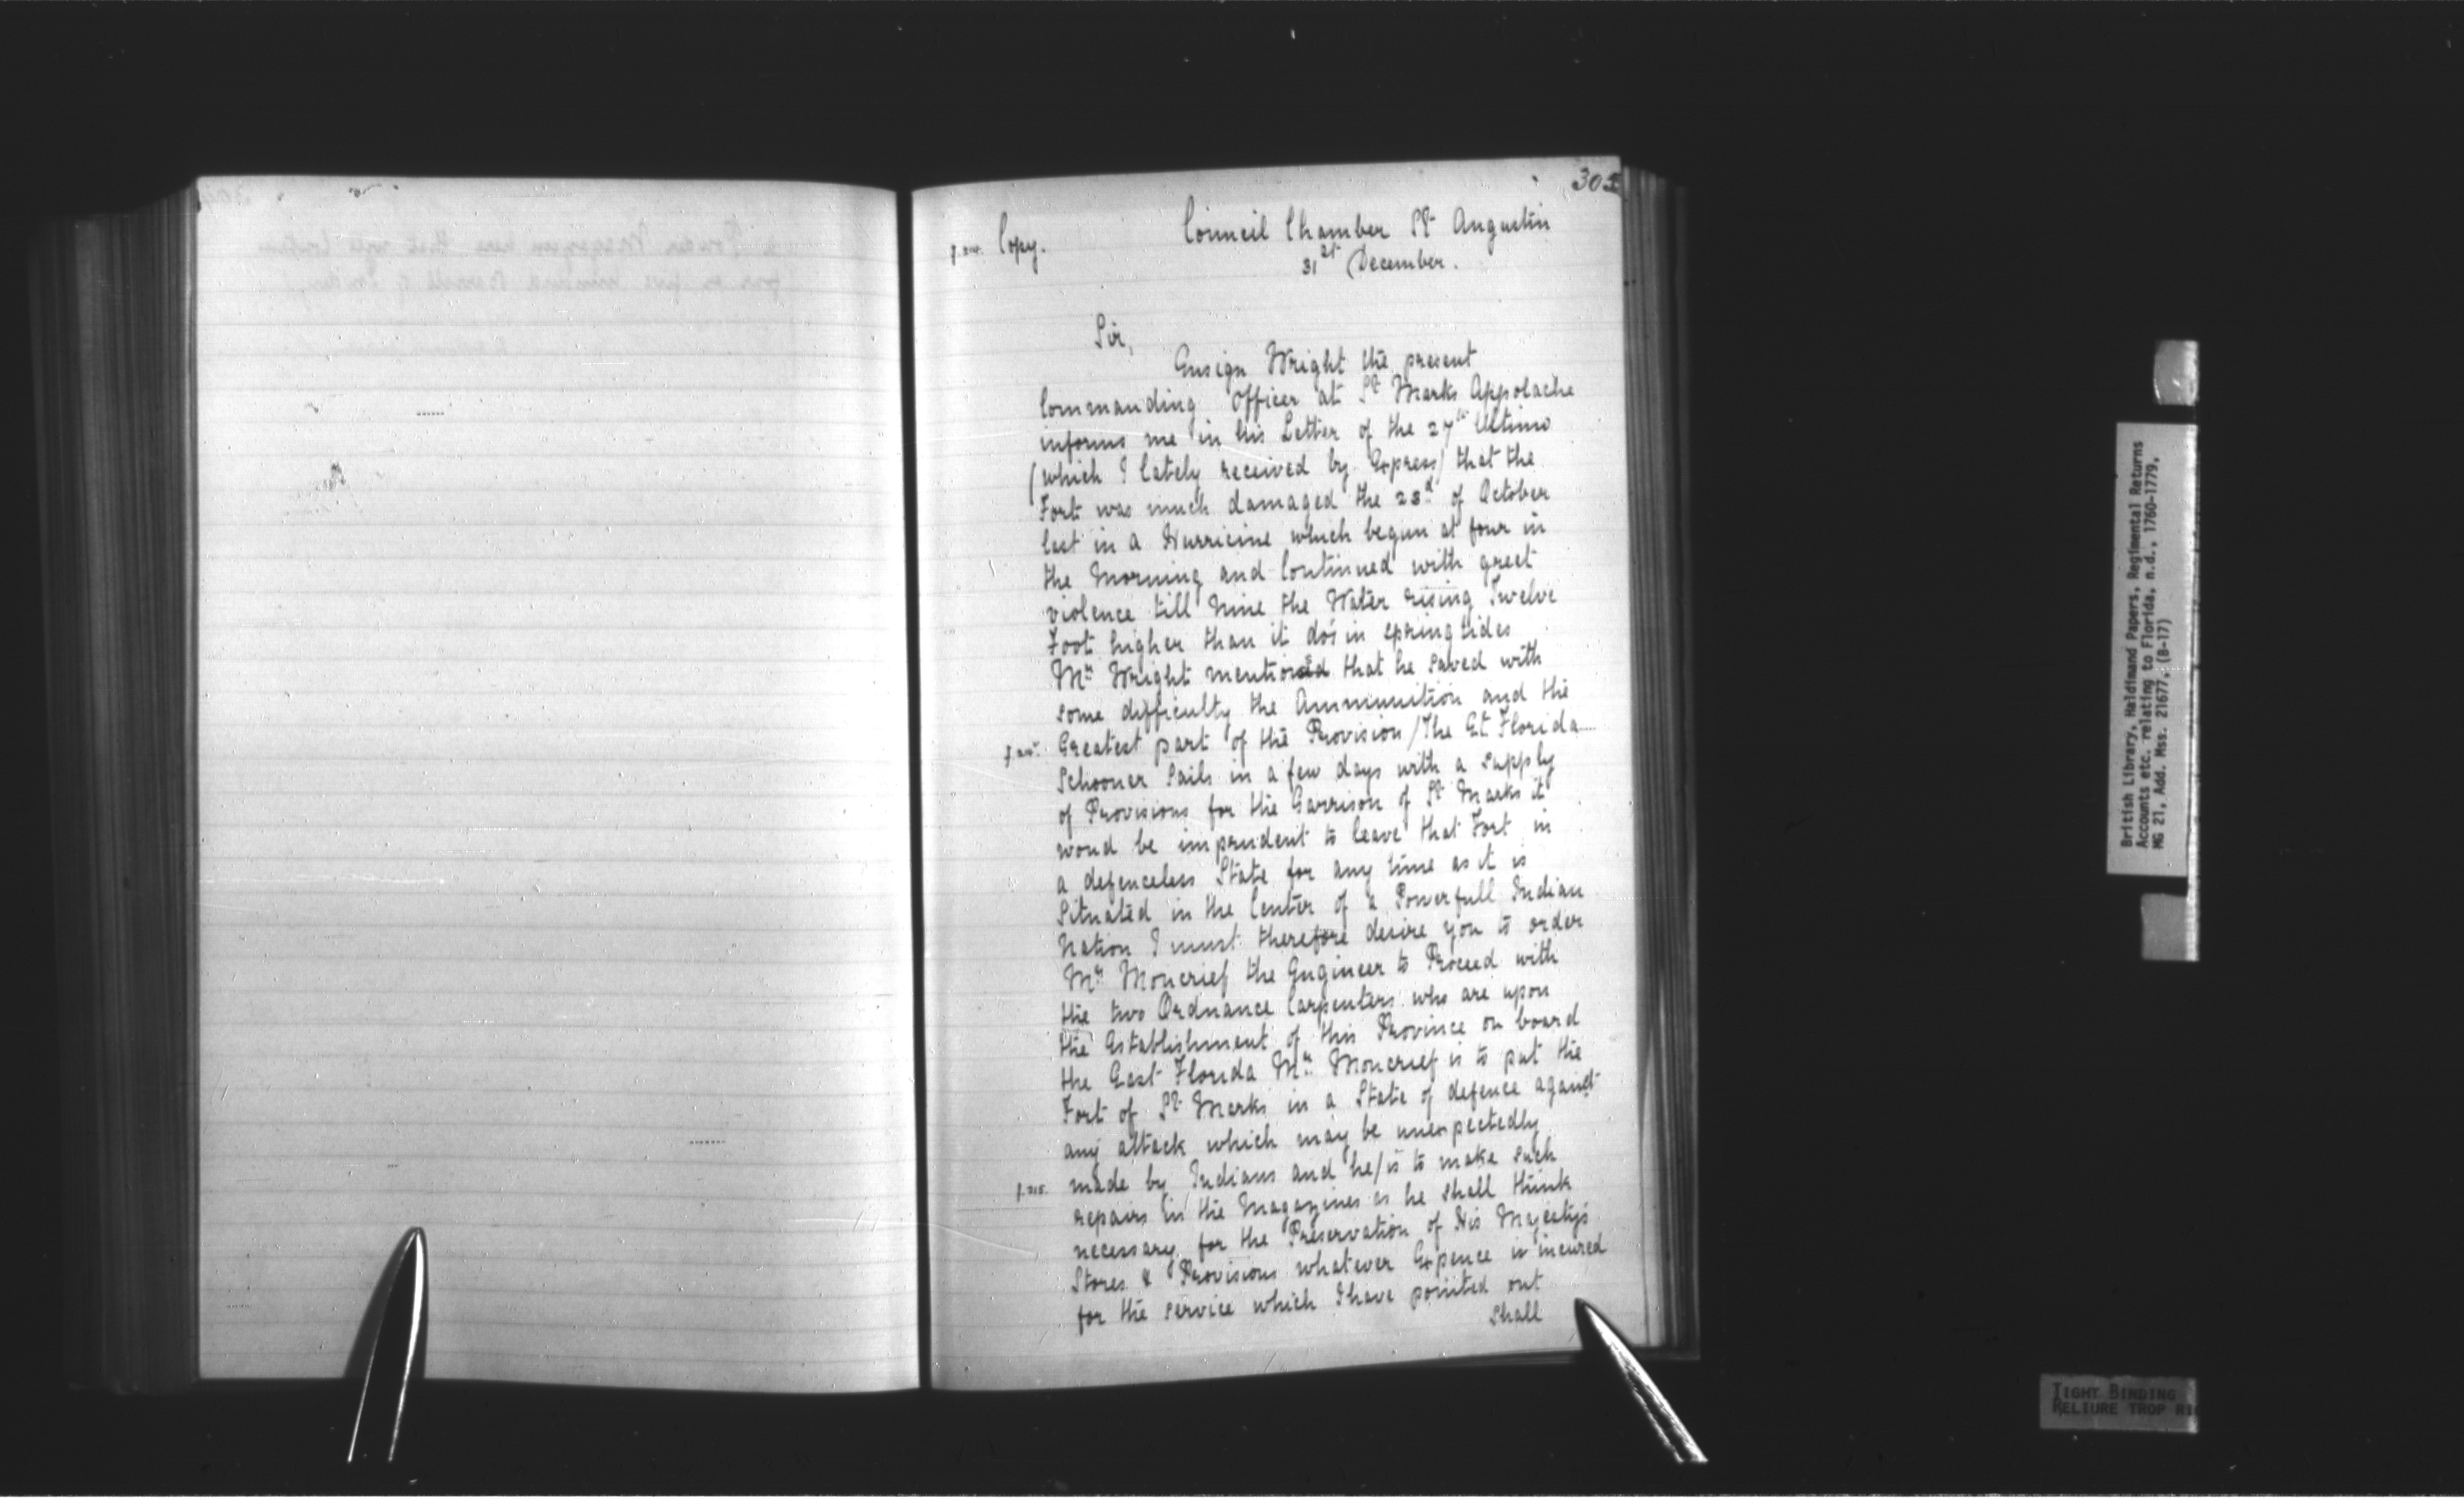 Copy. Council Chamber St Augustin
31st December.
Sir,
Ensign Wright the present
Commanding Officer at St Marks Appolache
informs me in his Letter of the 27th Ultimo
(which I lately received by Express) that the
Fort was much damaged the 23d of October
last in a Hurricine which begun at four in
the Morning and Continued with great
violence till Nine the Water rising Twelve
Foot higher than it dos in spring tides
Mr Wright mentioned that he saved with
some difficulty the Ammunition and the
Greatest part of the Provision/The Et Florida
Schooner Sails in a few days with a supply
of Provisions for the Garrison of St Marks it
woud be imprudent to leave that Fort in
a defenceless State for any time as it is
Situated in the Center of a Powerfull Indian
Nation I must therefore desire you to order
Mr Moncrief the Engineer to Proceed with
the two Ordnance Carpenters who are upon
the Establishment of this Province on board
the East Florida Mr Moncrief is to put the
Fort of St Marks in a State of defence against
any attack which may be unexpectedly
f.215. made by Indians and he/is to make such
repairs in the Magazines as he shall think
necessary for the Preservation of His Majesty's
Stores & Provisions whatever Expence is incured
for the service which I have pointed out
Shall
British Library, Haldimand Papers, Regimental Returns
Accounts etc. relating to Florida, n.d., 1760-1779,
MG 21, Add. Mss. 21677, (B-17)
TIGHT BINDING
RELIURE TROP